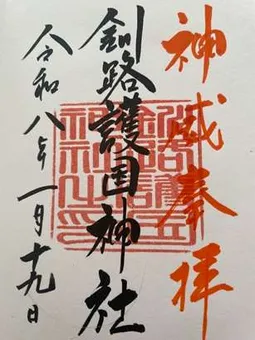 神威奉拝
釧路護国神社
令和八年一月十九日